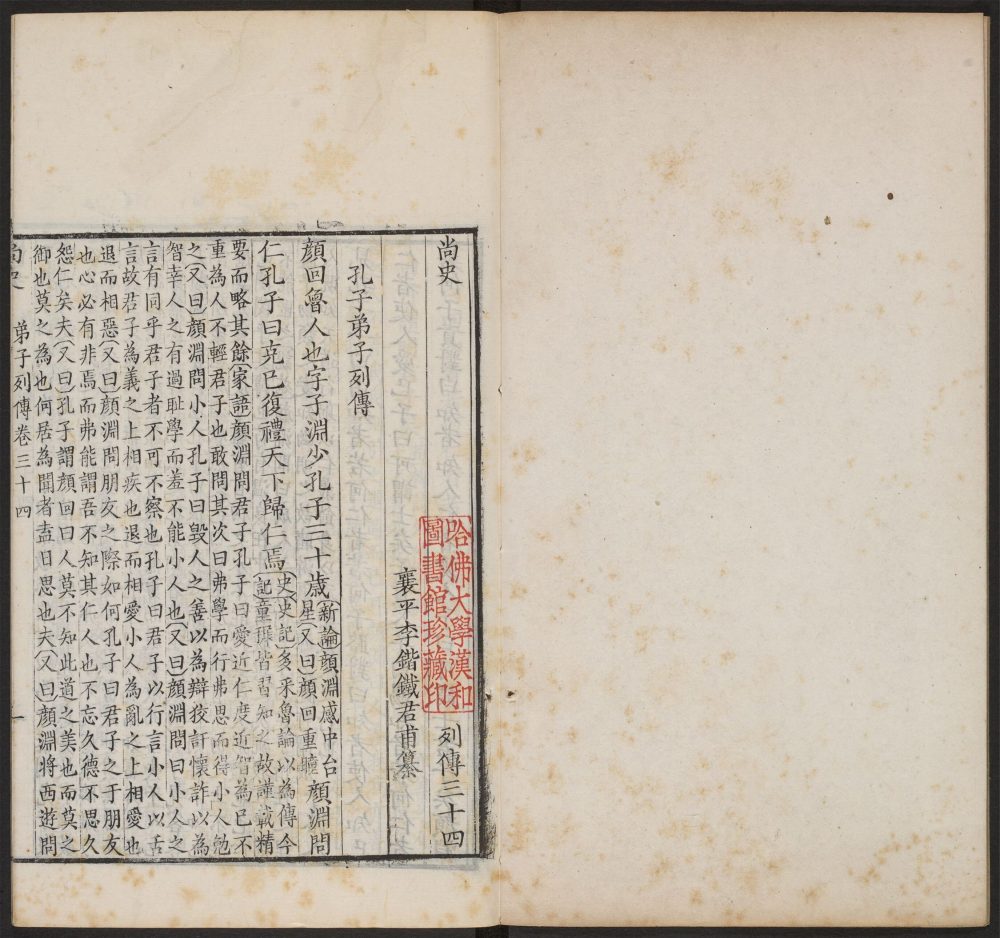 尚史 列傳三十四
哈佛大學漢和
圖書館珍藏印
襄平李鍇鐵君甫纂
孔子弟子列傳
顏回魯人也字子淵少孔子三十歲(新論)顏淵感中台星又曰顏回重瞳 顏淵問
仁孔子曰克己復禮天下歸仁焉(史記)史記多采魯論以為傳今童穉皆習知之故謹識精
要而略其餘(家語)顏淵問君子孔子曰愛近仁度近智為己不
重為人不輕君子也敢問其次曰弗學而行弗思而得小人勉
之(又曰)顏淵問小人孔子曰毀人之善以為辯狡訐懷詐以為
智幸人之有過恥學而羞不能小人也(又曰)顏淵問曰小人之
言有同乎君子者不可不察也孔子曰君子以行言小人以舌
言故君子為義之上相疾也退而相愛小人為亂之上相愛也
退而相惡(又曰)顏淵問朋友之際如何孔子曰君子之于朋友
也心必有非焉而弗能謂吾不知其仁人也不忘久德不思久
怨仁矣夫(又曰)孔子謂顏回曰人莫不知此道之美也而莫之
御也莫之為也何居為聞者盍日思也夫(又曰)顏淵將西遊問
尚史 弟子列傳卷三十四 一